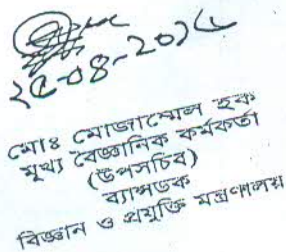 ২৫-০৪-২০১৮
মোঃ মোজাম্মেল হক
মূখ্য বৈজ্ঞানিক কর্মকর্তা
(উপসচিব)
ব্যান্সডক
বিজ্ঞান ও প্রযুক্তি মন্ত্রণালয়